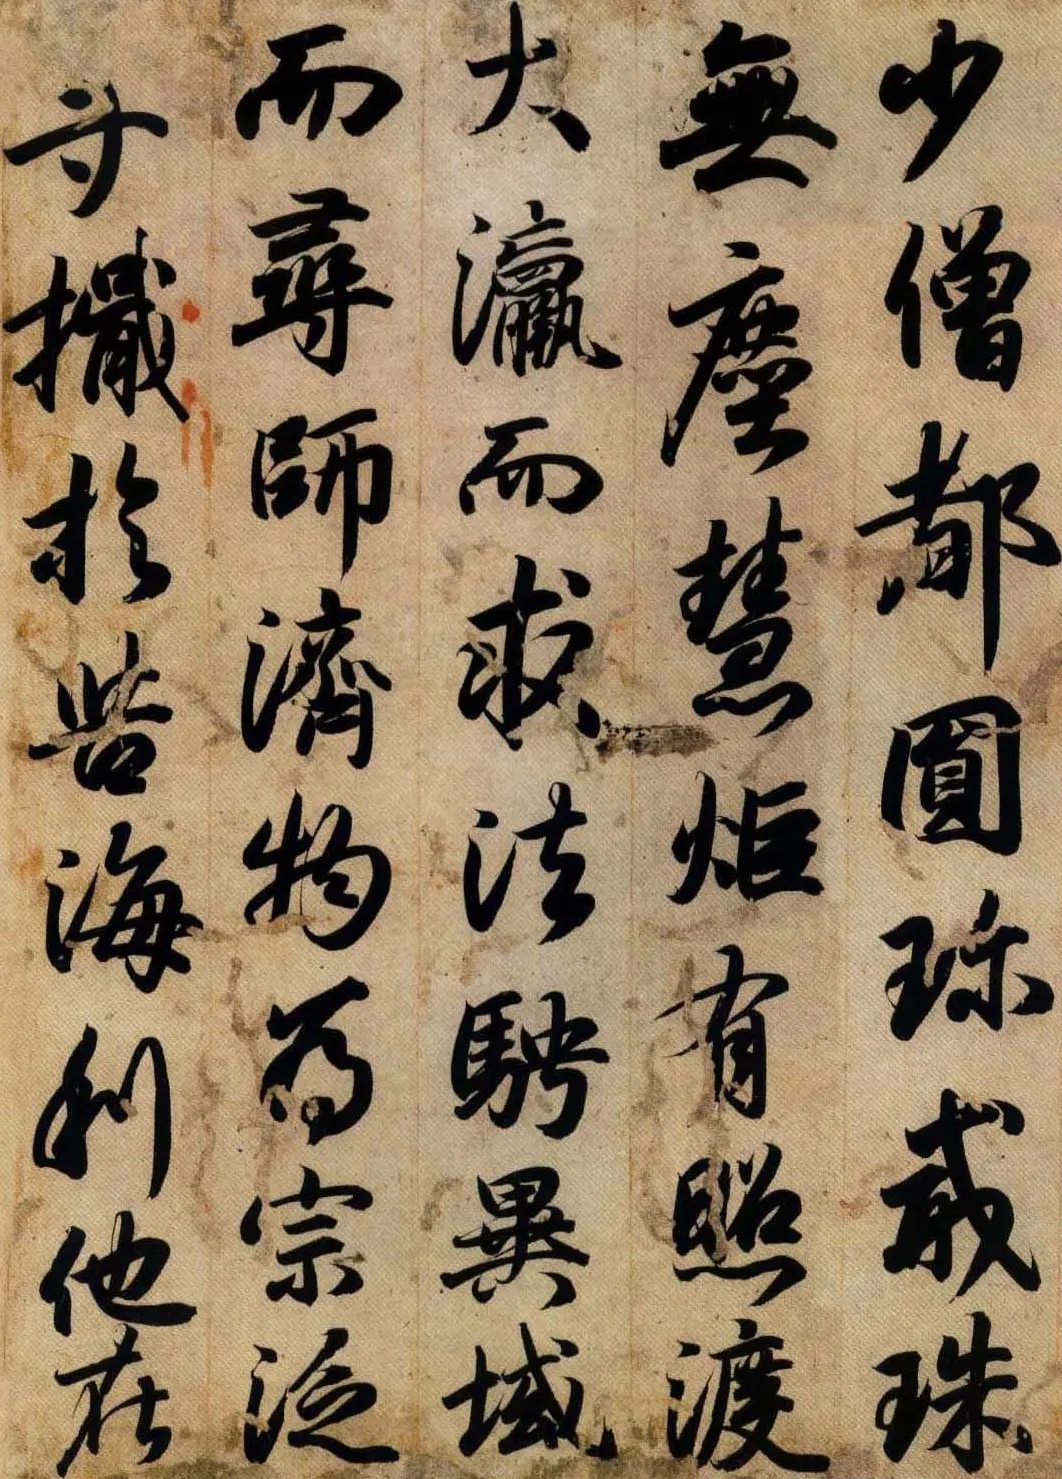 少僧都圓珎戒珠
無塵慧炬有照渡
大瀛而求法騁異域
而尋師濟物為宗泛
寸檝於苦海利他在